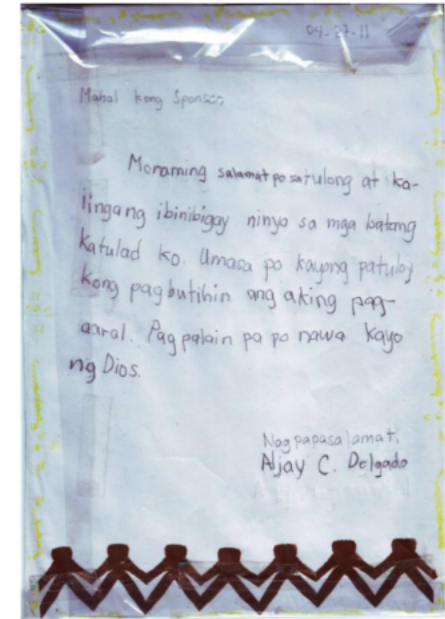 04-27-11
Mahal kong Sponsor,
Maraming salamat po sa tulong at ka-
lingang ibinibigay ninyo sa mga batang
katulad ko. Umasa po kayong patuloy
kong pagbutihin ang aking pag-
aaral. Pagpalain pa po nawa kayo
ng Dios.
Nagpapasalamat,
Aljay C. Delgado